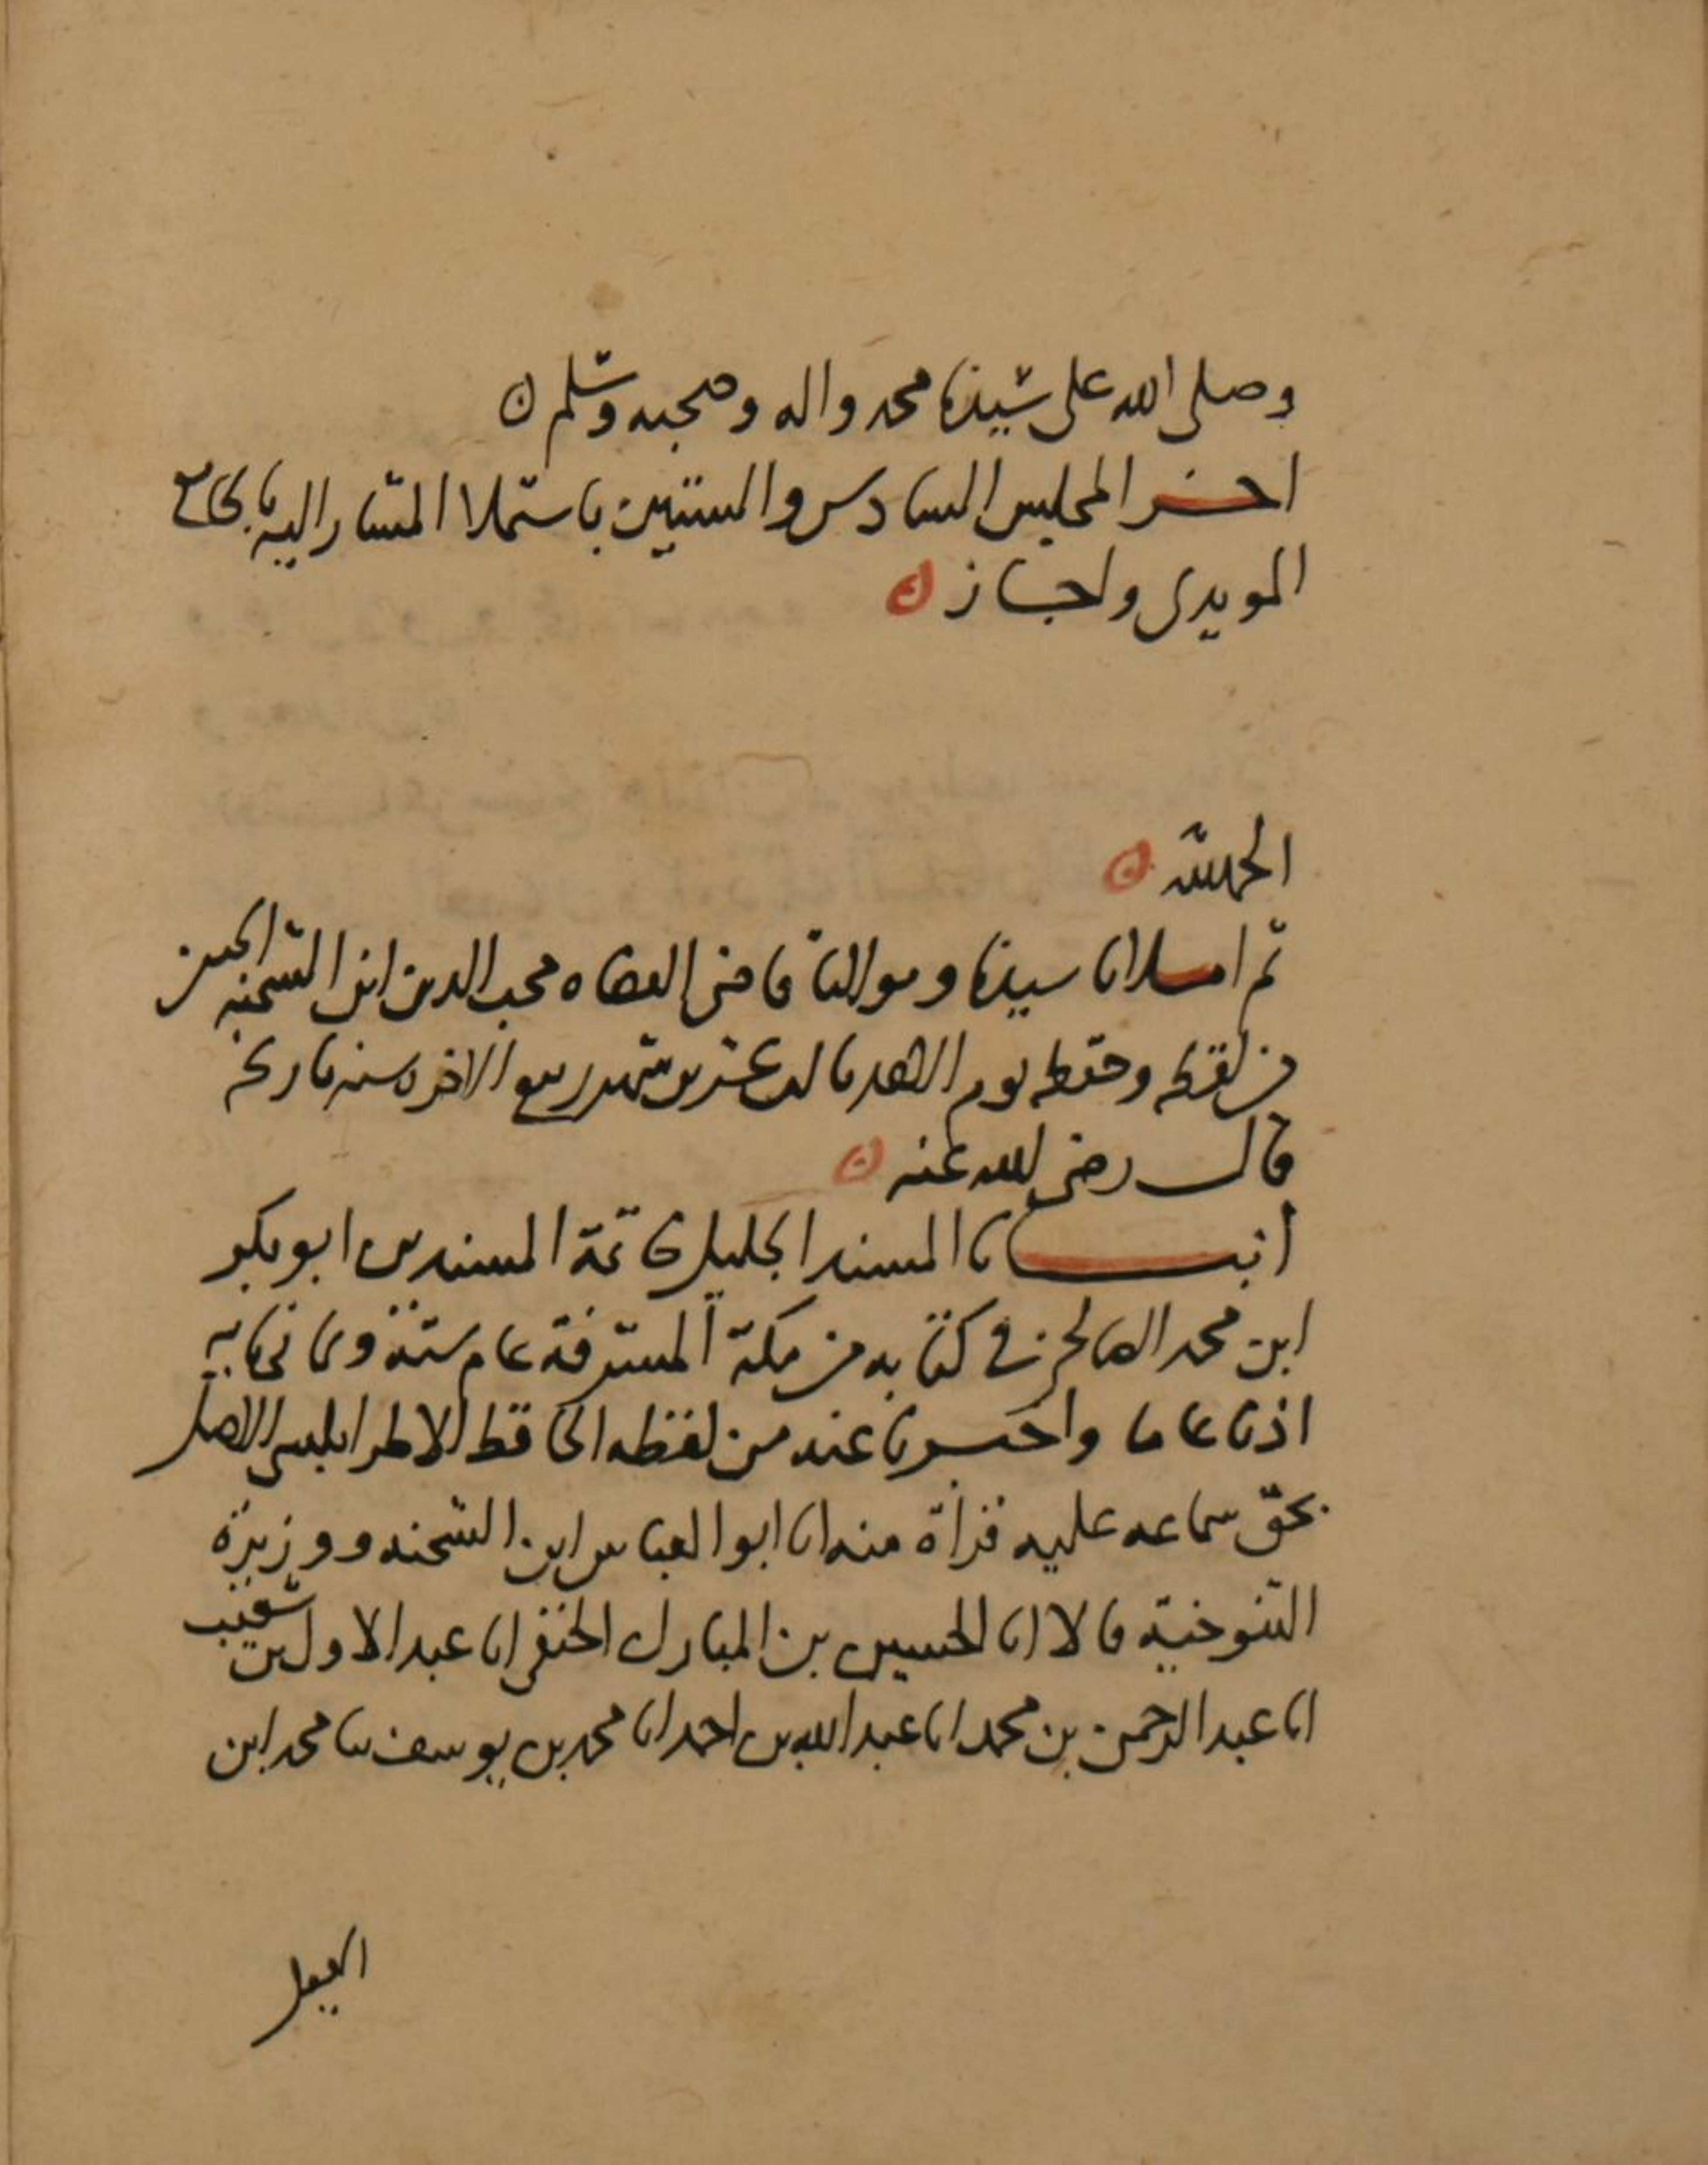 وصلى الله على سيدنا محمد واله وصحبه وسلم ن
اخر المجلس السادس والستين باستملا المشار اليه بجامع
المويدى واجاز
الحمد لله
ثم املانا سيدنا ومولانا قاضى القضاه محب الدين ابن الشحنه الحنفى
من لفظه وحفظه يوم الاحد عشرين شهر ربيع الاخر سنه تاريخه
قال رضى الله عنه
انبانا المسند الجليل خاتمة المسندين ابو بكر
ابن محمد فى كتابه من مكة المشرفة عام ستة وثمانمايه
اذنا عاما واخبرنا عنه من لفظه الحافظ الطرابلسى الاصل
بحق سماعه عليه قراة منه انا ابو العباس ابن الشحنه ووزيرة
التنوخية قالا انا الحسين بن المبارك الحنفى انا عبد الاول بن شعيب
انا عبد الرحمن بن محمد انا عبد الله بن احمد انا محمد بن يوسف سا محمد ابن